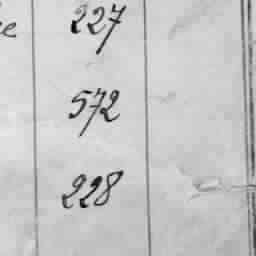 227
572
228